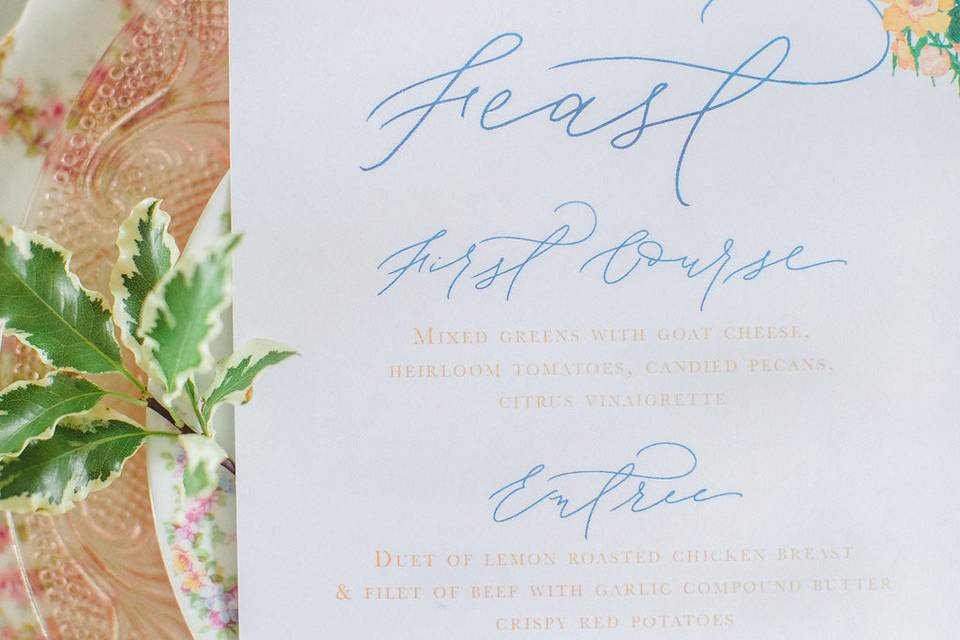 Feast
First Course
Mixed greens with goat cheese,
heirloom tomatoes, candied pecans,
citrus vinaigrette
Entree
Duet of lemon roasted chicken breast
& filet of beef with garlic compound butter
crispy red potatoes